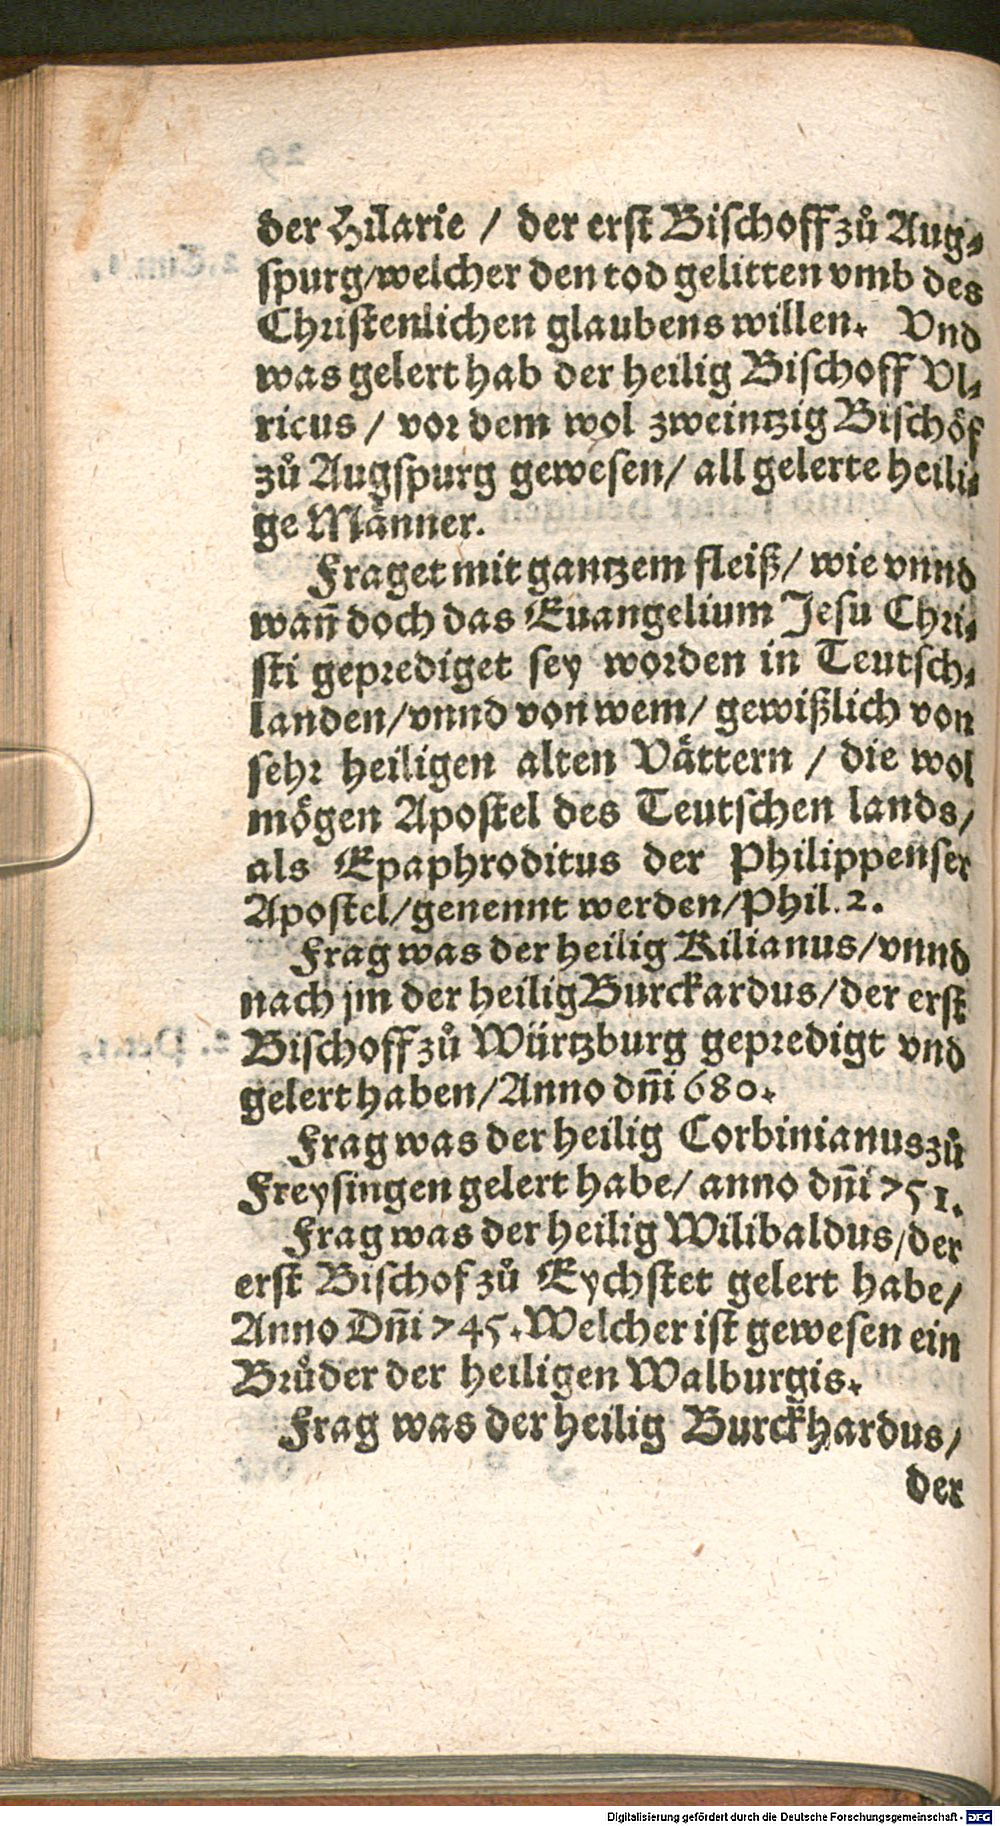 der Hilarie / der erst Bischoff zů Aug⸗
spurg/welcher den tod gelitten vmb des
Christenlichen glaubens willen. Vnd
was gelert hab der heilig Bischoff Vl⸗
ricus / vor dem wol zweintzig Bischöf
zů Augspurg gewesen/ all gelerte heili⸗
ge Männer.
Fraget mit gantzem fleiß/ wie vnnd
wañ doch das Euangelium Jesu Chri⸗
sti geprediget sey worden in Teutsch⸗
landen/vnnd von wem/ gewißlich von
sehr heiligen alten Vättern / die wol
mögen Apostel des Teutschen lands/
als Epaphroditus der Philippenser
Apostel/genennt werden/Phil. 2.
Frag was der heilig Kilianus/vnnd
nach jm der heilig Burckardus/der erst
Bischoff zů Würtzburg gepredigt vnd
gelert haben/Anno dñi 680.
Frag was der heilig Corbinianus zů
Freysingen gelert habe/ anno dñi 751.
Frag was der heilig Wilibaldus/der
erst Bischof zů Eychstet gelert habe/
Anno Dñi 745. Welcher ist gewesen ein
Brůder der heiligen Walburgis.
Frag was der heilig Burckhardus/
der
Digitalisierung gefördert durch die Deutsche Forschungsgemeinschaft - DFG